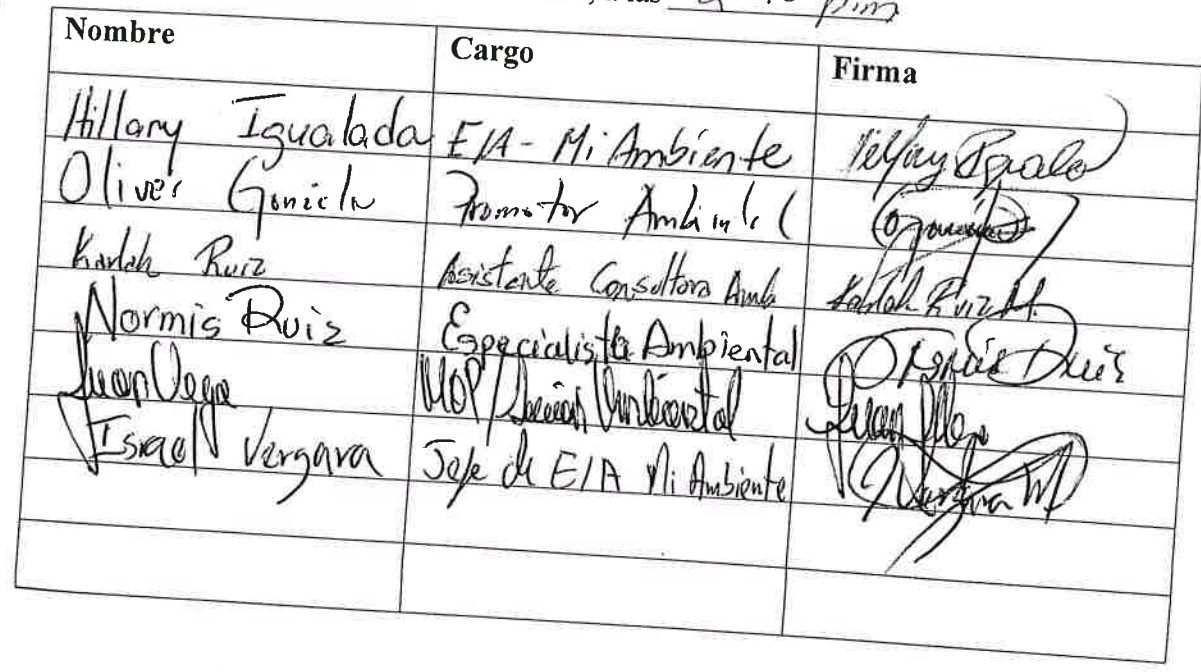 a las pm
Nombre Cargo Firma
Hillary Igualada EIA - Mi Ambiente
Oliver Promotor Ambiental
Karlah Ruiz Asistente Consultora Amb Karlah Ruiz M.
Normis Ruiz Especialista Ambiental Ruiz
Juan Vega MOP/ Ambiental Juan Vega
Israel Vergara Jefe de EIA Mi Ambiente Vergara M